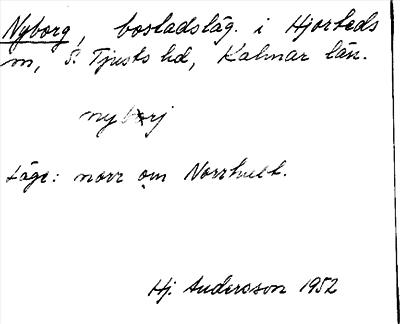 Nyborg, bostadsläg. i Hjorteds
sn, S. Tjusts hd, Kalmar län.
nybårj
Läge: norr om Norrhult.
Hj. Andersson 1952